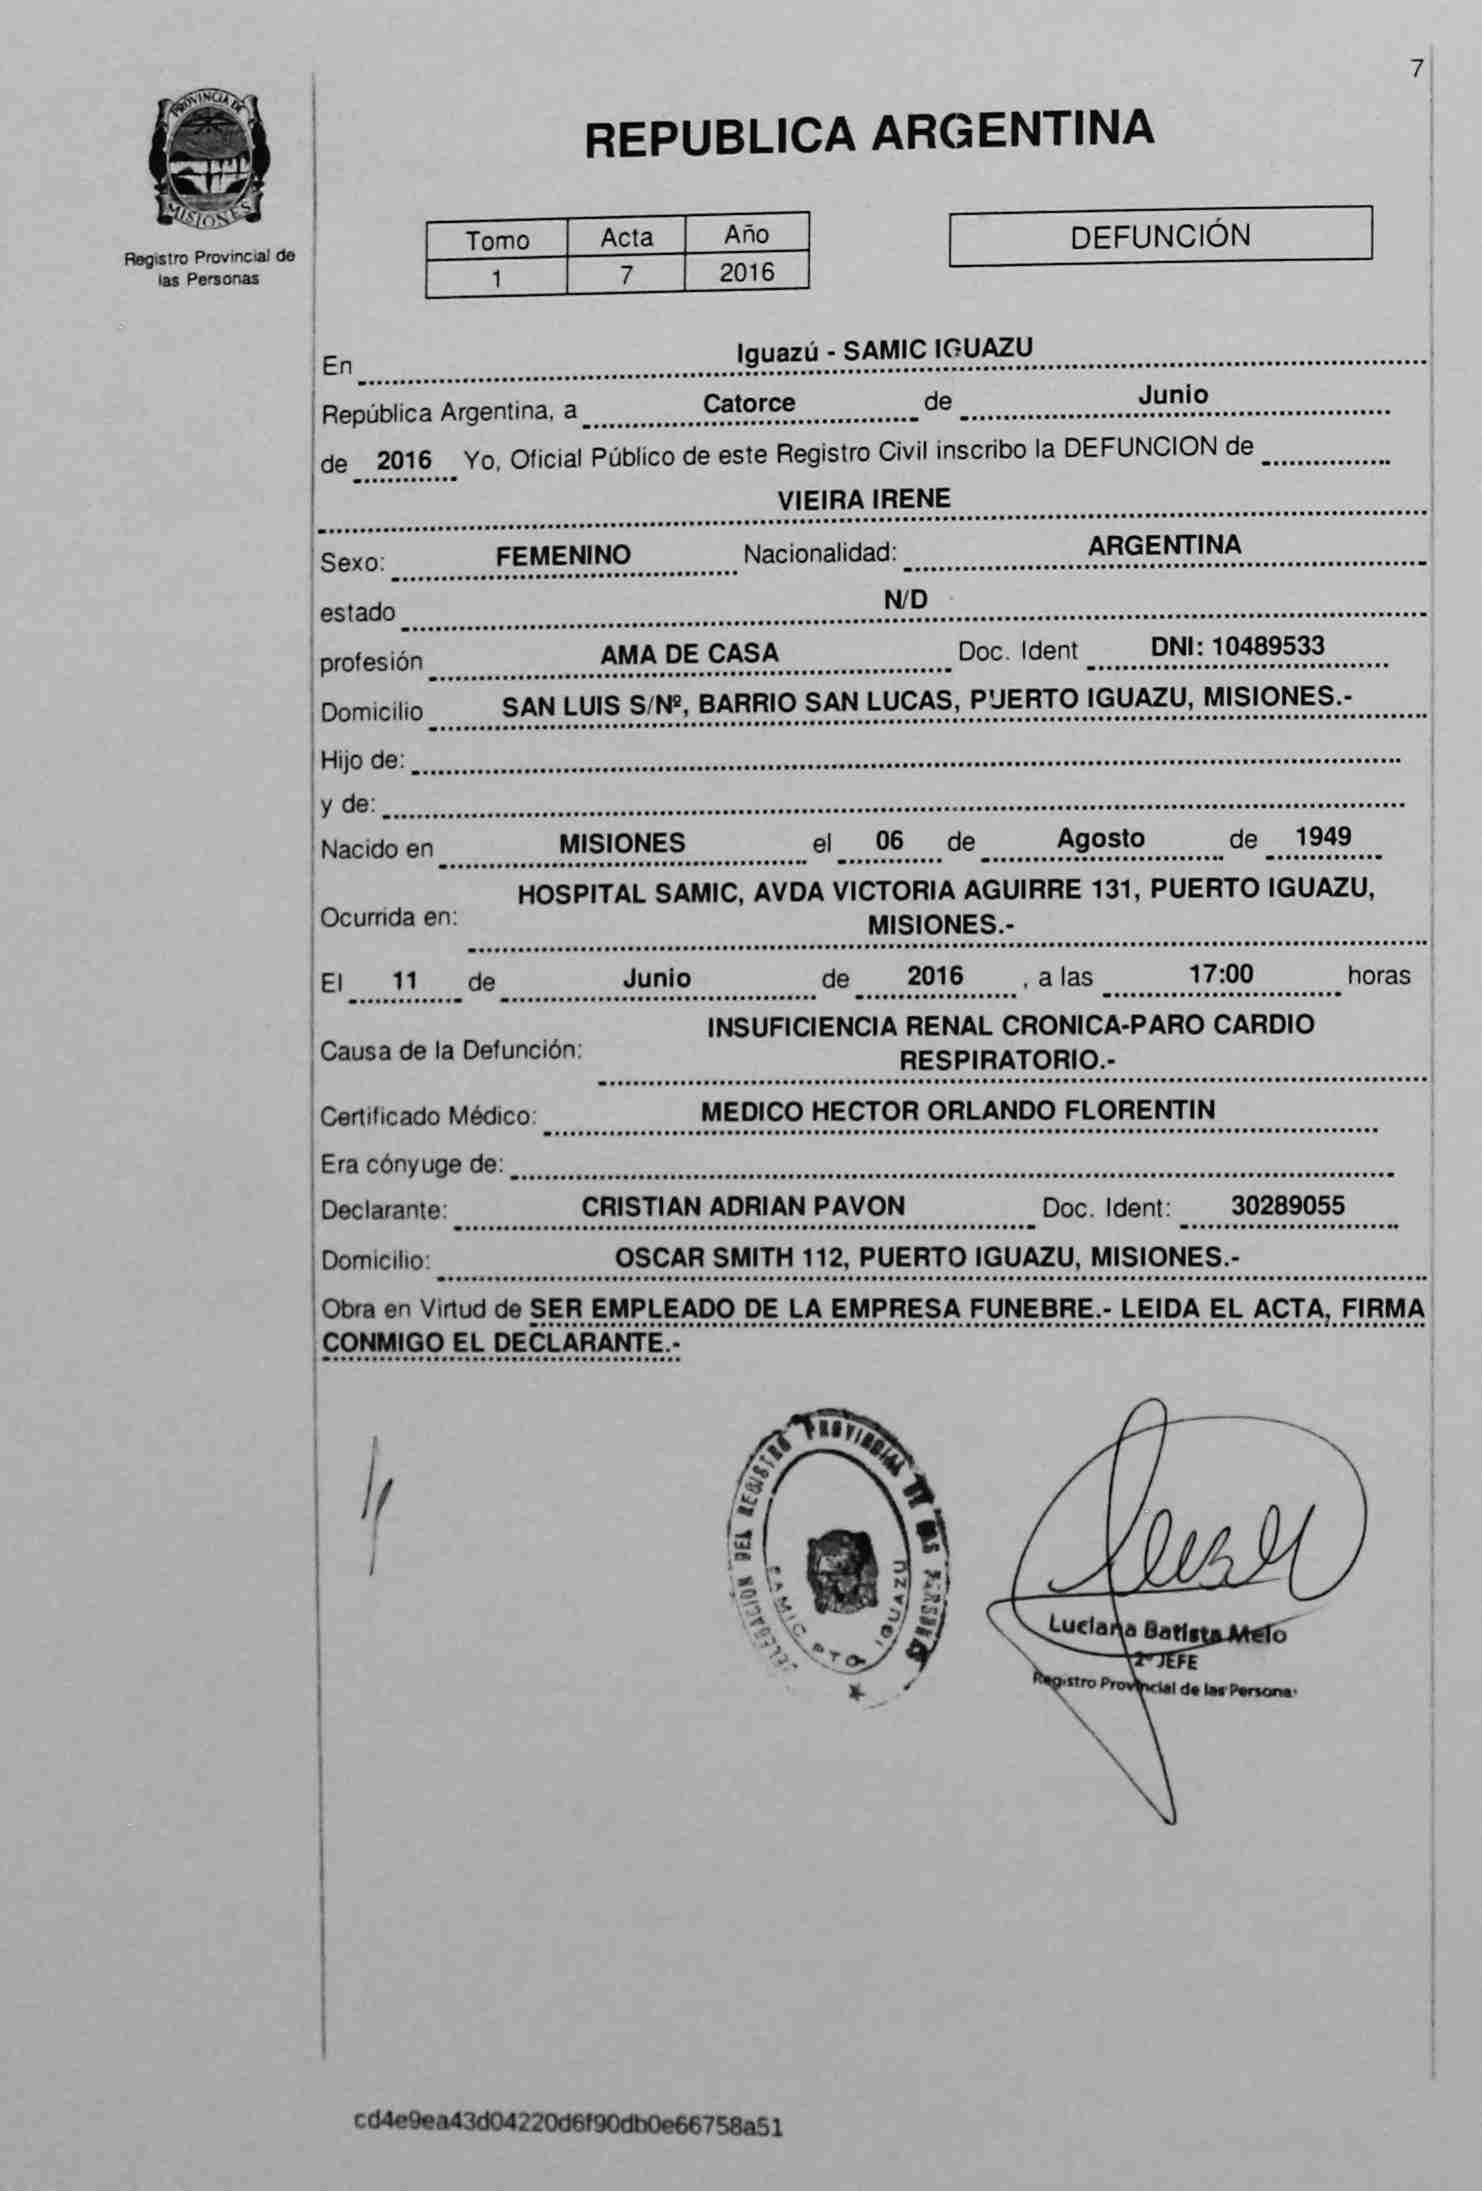 7
PROVINCIA DE
MISIONES
Registro Provincial de
las Personas
REPUBLICA ARGENTINA
Tomo Acta Año
1 7 2016
DEFUNCIÓN
En Iguazú - SAMIC IGUAZU
República Argentina, a Catorce de Junio
de 2016 Yo, Oficial Público de este Registro Civil inscribo la DEFUNCION de
VIEIRA IRENE
Sexo: FEMENINO Nacionalidad: ARGENTINA
estado N/D
profesión AMA DE CASA Doc. Ident DNI: 10489533
Domicilio SAN LUIS S/Nº, BARRIO SAN LUCAS, PUERTO IGUAZU, MISIONES.-
Hijo de:
y de:
Nacido en MISIONES el 06 de Agosto de 1949
HOSPITAL SAMIC, AVDA VICTORIA AGUIRRE 131, PUERTO IGUAZU,
Ocurrida en: MISIONES.-
El 11 de Junio de 2016 , a las 17:00 horas
INSUFICIENCIA RENAL CRONICA-PARO CARDIO
Causa de la Defunción: RESPIRATORIO.-
Certificado Médico: MEDICO HECTOR ORLANDO FLORENTIN
Era cónyuge de:
Declarante: CRISTIAN ADRIAN PAVON Doc. Ident: 30289055
Domicilio: OSCAR SMITH 112, PUERTO IGUAZU, MISIONES.-
Obra en Virtud de SER EMPLEADO DE LA EMPRESA FUNEBRE.- LEIDA EL ACTA, FIRMA
CONMIGO EL DECLARANTE.-
DELEGACION DEL REGISTRO PROVINCIAL DE LAS PERSONAS
SAMIC PTO IGUAZU
Luciana Batista Melo
2º JEFE
Registro Provincial de las Personas
cd4e9ea43d04220d6f90db0e66758a51